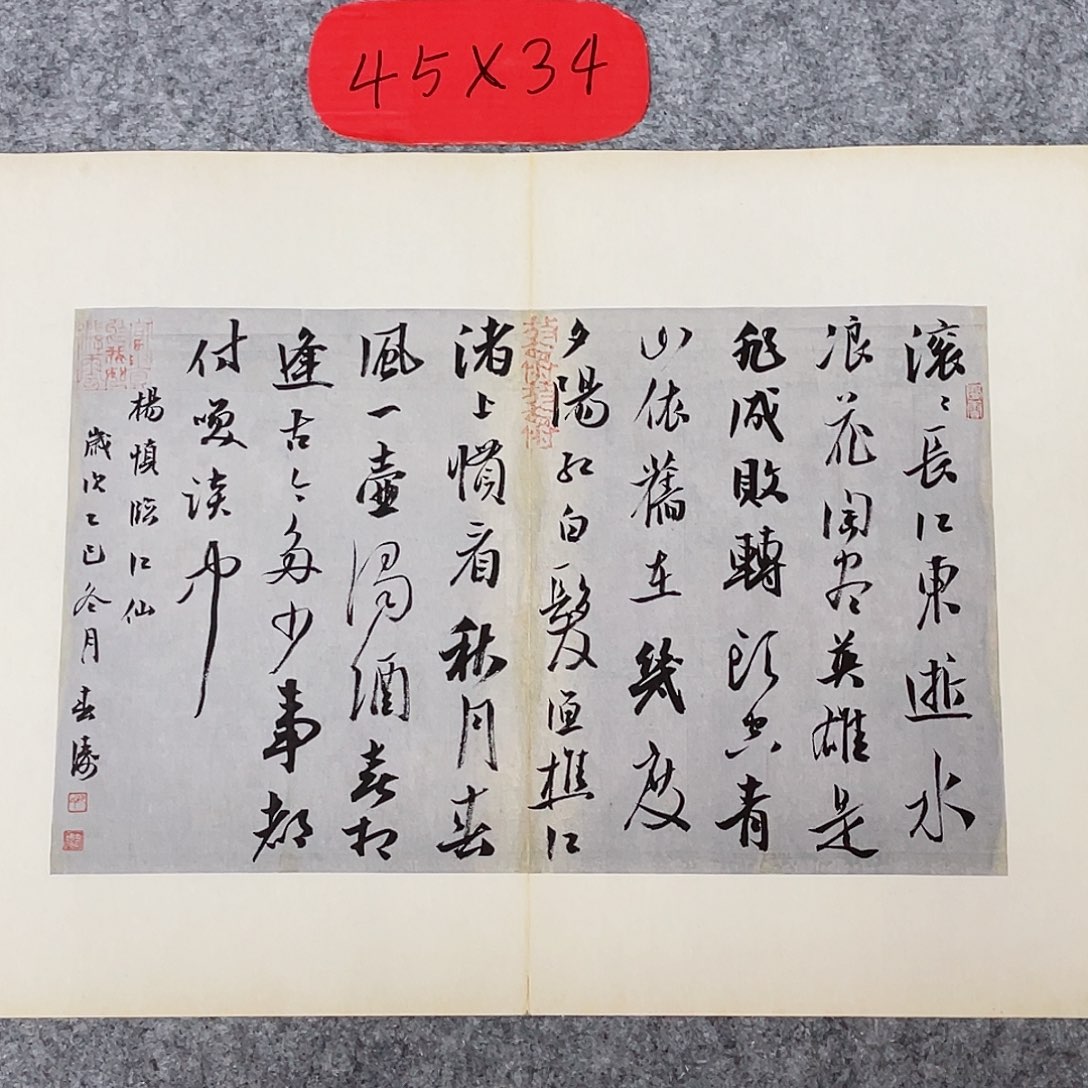 45X34
滚〻長江東逝水
浪花淘盡英雄是
非成敗轉頭空青
山依舊在幾度
夕陽紅白髮漁樵江
渚上慣看秋月春
風一壺濁酒喜相
逢古今多少事都
付笑談中
楊慎臨江仙
歲次乙巳冬月 春濤